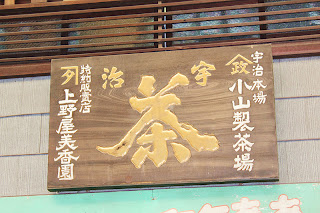 宇治本場
政 小山製茶場
宇治
茶
特約販賣店
列 上野屋美香園